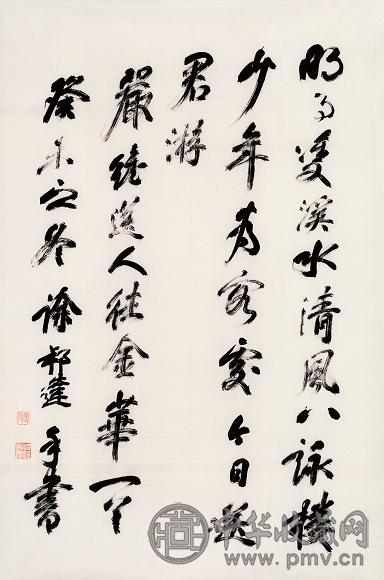 明月雙溪水清風八詠樓
少年為客處今日送
君游
嚴維送人往金華一首
癸未之冬徐邦達手書
中华收藏网
www.pmv.cn